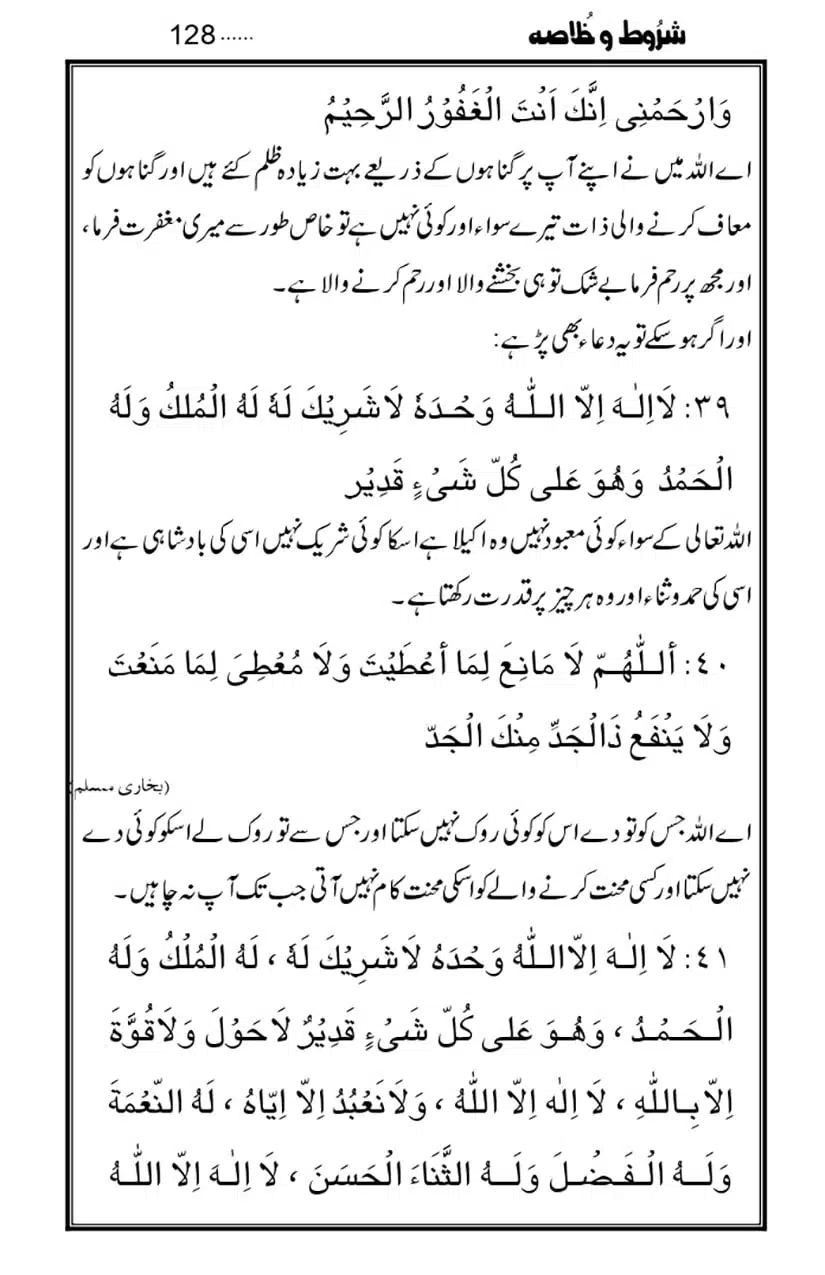 شرُوط و خُلاصه ...... 128
وَارْحَمْنِی اِنَّكَ اَنْتَ الْغَفُوْرُ الرَّحِيْمُ
اے اللہ میں نے اپنے آپ پر گناہوں کے ذریعے بہت زیادہ ظلم کئے ہیں اور گناہوں کو
معاف کرنے والی ذات تیرے سواء اور کوئی نہیں ہے تو خاص طور سے میری مغفرت فرما،
اور مجھ پر رحم فرما بے شک تو ہی بخشنے والا اور رحم کرنے والا ہے۔
اور اگر ہو سکے تو یہ دعاء بھی پڑ ہے:
٣٩: لَااِلٰـهَ اِلاّ اللّٰـهُ وَحْـدَهٗ لَاشَرِيْكَ لَهٗ لَهُ الْمُلكُ وَلَهُ
الْحَمْدُ وَهُوَ عَلی كُلّ شَیْءٍ قَدِيْر
اللہ تعالی کے سواء کوئی معبود نہیں وہ اکیلا ہے اسکا کوئی شریک نہیں اسی کی بادشاہی ہے اور
اسی کی حمد و ثناء اور وہ ہر چیز پر قدرت رکھتا ہے۔
٤٠: أللّٰهُـمّ لَا مَانِعَ لِمَا أعْطَيْتَ وَلَا مُعْطِیَ لِمَا مَنَعْتَ
وَلَا يَنْفَعُ ذَالْجَدِّ مِنْكَ الْجَدّ
(بخاری مسلم)
اے اللہ جس کو تو دے اس کو کوئی روک نہیں سکتا اور جس سے تو روک لے اسکو کوئی دے
نہیں سکتا اور کسی محنت کرنے والے کو اسکی محنت کام نہیں آتی جب تک آپ نہ چاہیں۔
٤١: لَا اِلٰـهَ اِلاّ اللّٰـهُ وَحْدَهُ لَاشَرِيْكَ لَهٗ ، لَهُ الْمُلْكُ وَلَهُ
الْـحَـمْـدُ ، وَهُـوَ عَلی كُلّ شَیْءٍ قَدِيْرٌ لَاحَوْلَ وَلَاقُوَّةَ
اِلاّ بِـاللّٰهِ ، لَا اِلٰه اِلاّ اللّٰهُ ، وَلَانَعْبُدُ اِلاّ اِيّاهُ ، لَهُ النّعْمَةَ
وَلَــهُ الْـفَـضْـلَ وَلَــهُ الثَّنَاءَ الْحَسَنَ ، لَا اِلٰـهَ اِلاّ اللّٰـهُ